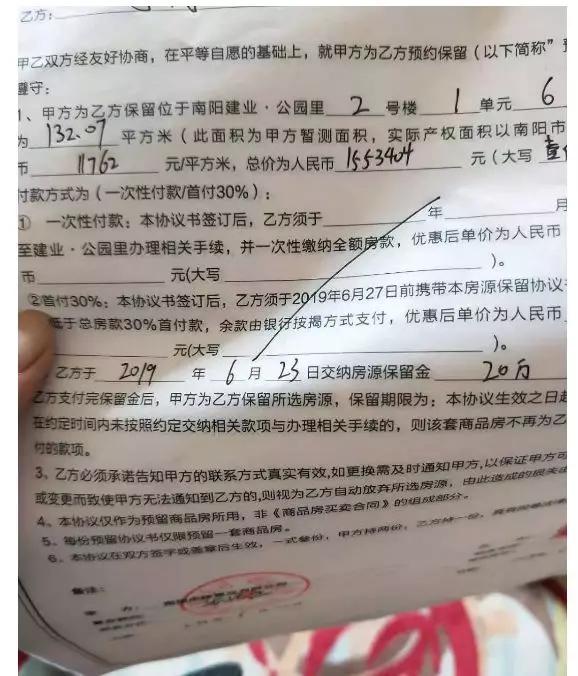 乙方：
甲乙双方经友好协商，在平等自愿的基础上，就甲方为乙方预约保留（以下简称"
遵守：
1、甲方为乙方保留位于南阳建业·公园里 2 号楼 1 单元 6
为 132.07 平方米（此面积为甲方暂测面积，实际产权面积以南阳市
币 11762 元/平方米，总价为人民币 1553404 元（大写 壹
付款方式为（一次性付款/首付30%）：
① 一次性付款：本协议书签订后，乙方须于 年 月
至建业·公园里办理相关手续，并一次性缴纳全额房款，优惠后单价为人民币
币 元(大写 )。
②首付30%：本协议书签订后，乙方须于2019年6月27日前携带本房源保留协议
低于总房款30%首付款，余款由银行按揭方式支付，优惠后单价为人民币
元(大写 )。
乙方于 2019 年 6 月 23 日交纳房源保留金 20万
乙方支付完保留金后，甲方为乙方保留所选房源，保留期限为：本协议生效之日起
在约定时间内未按照约定交纳相关款项与办理相关手续的，则该套商品房不再为乙
付的款项。
3、乙方必须承诺告知甲方的联系方式真实有效,如更换需及时通知甲方,以保证甲方可
或变更而致使甲方无法通知到乙方的,则视为乙方自动放弃所选房源，由此造成的损失由
4、本协议仅作为预留商品房所用，非《商品房买卖合同》的组成部分。
5、每份预留协议书仅限预留一套商品房。
6、本协议在双方签字或盖章后生效，一式叁份，甲方持两份，乙方持一份，
备注：